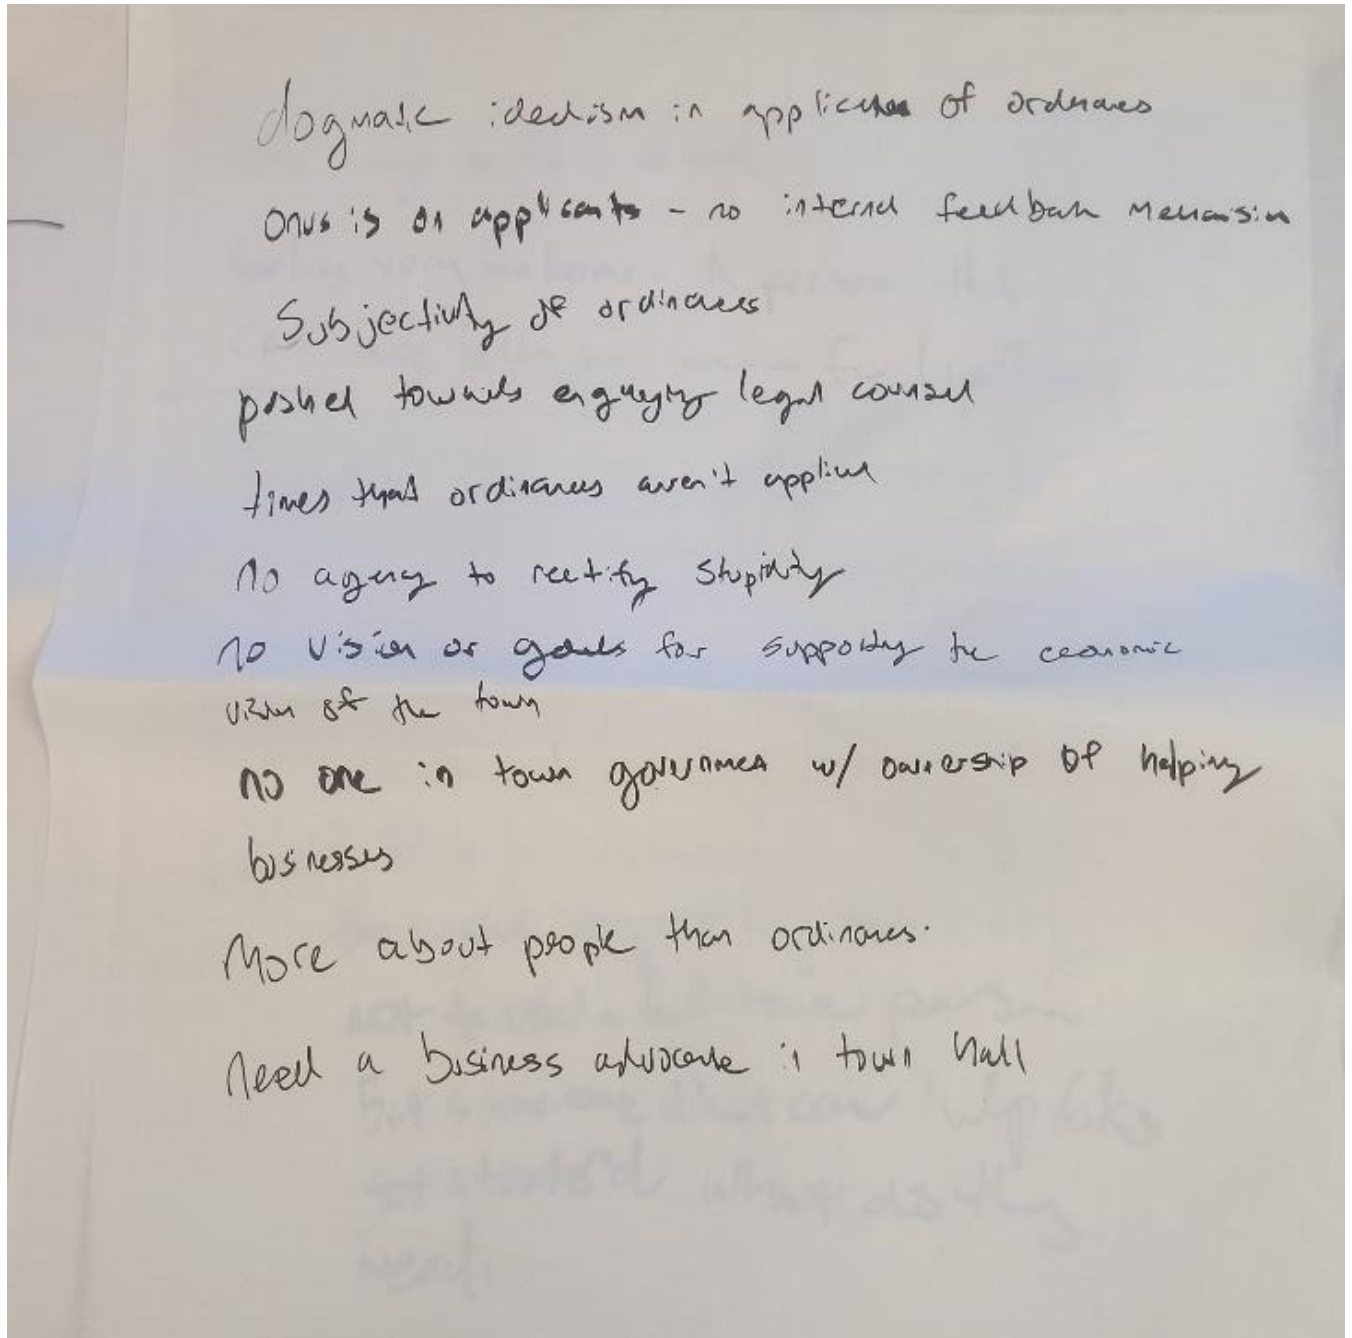 dogmatic idealism in application of ordinances
onus is on applicants - no internal feedback mechanism
Subjectivity of ordinances
pushed towards engaging legal counsel
times that ordinances aren't applied
no agency to rectify stupidity
no vision or goals for supporting the economic
vision of the town
no one in town government w/ ownership of helping
businesses
More about people than ordinances.
need a business advocate in town hall